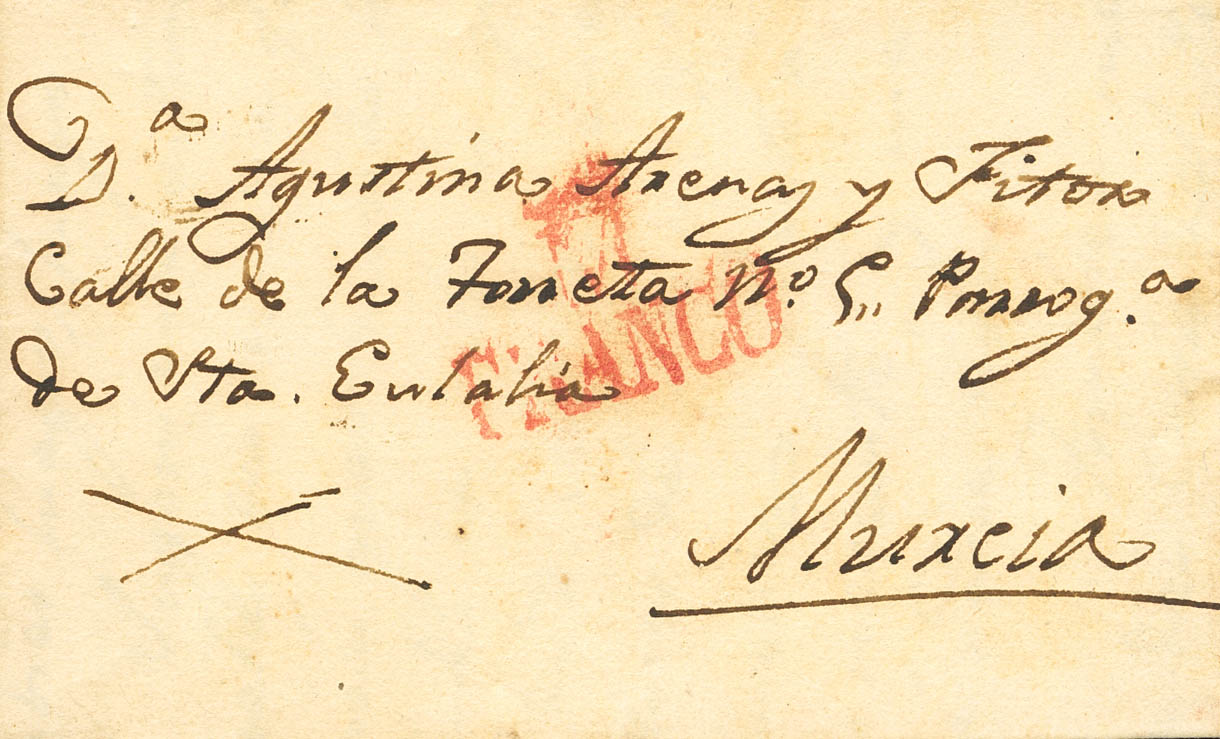 D.ª Agustina Arenas y Fitor
Calle de la Torreta Nº 5, Parroq.ª
de Sta. Eulalia
FRANCO
Murcia